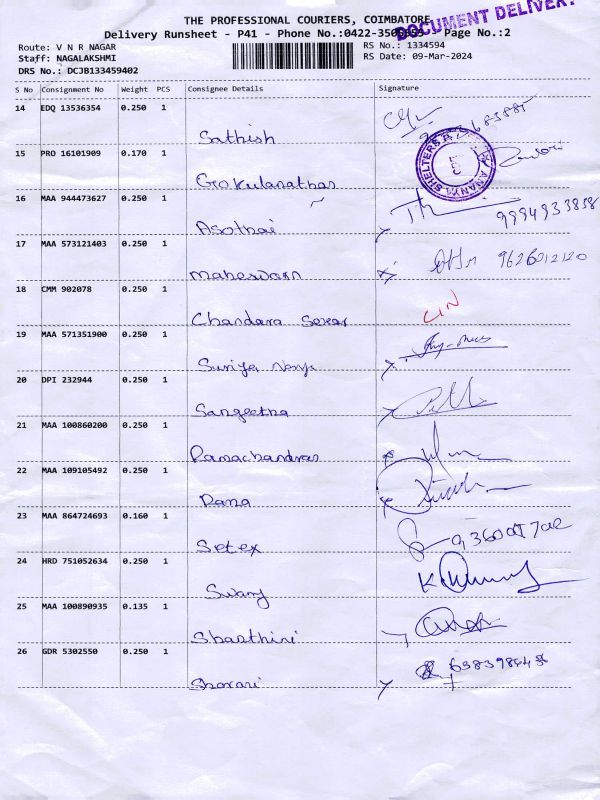 THE PROFESSIONAL COURIERS, COIMBATORE
DOCUMENT DELIVERY
Delivery Runsheet - P41 - Phone No.:0422-350 Page No.:2
Route: V N R NAGAR
Staff: NAGALAKSHMI
DRS No.: DCJB133459402
RS No.: 1334594
RS Date: 09-Mar-2024
S No Consignment No Weight PCS Consignee Details Signature
14 EDQ 13536354 0.250 1
Sathish
SHELTERS ANANYA
15 PRO 16101909 0.170 1
Gokulanathan
16 MAA 944473627 0.250 1
Asothai 9994933858
17 MAA 573121403 0.250 1
Maheswarn 9626012120
18 CMM 902078 0.250 1
Chandara Sexar LIN
19 MAA 571351900 0.250 1
Suriya
20 DPI 232944 0.250 1
Sangeetha
21 MAA 100860200 0.250 1
Ramachandran
22 MAA 109105492 0.250 1
Rama
23 MAA 864724693 0.160 1
Setex
24 HRD 751052634 0.250 1
Swamy
25 MAA 100890935 0.135 1
Sharthini
26 GDR 5302550 0.250 1
Sharani